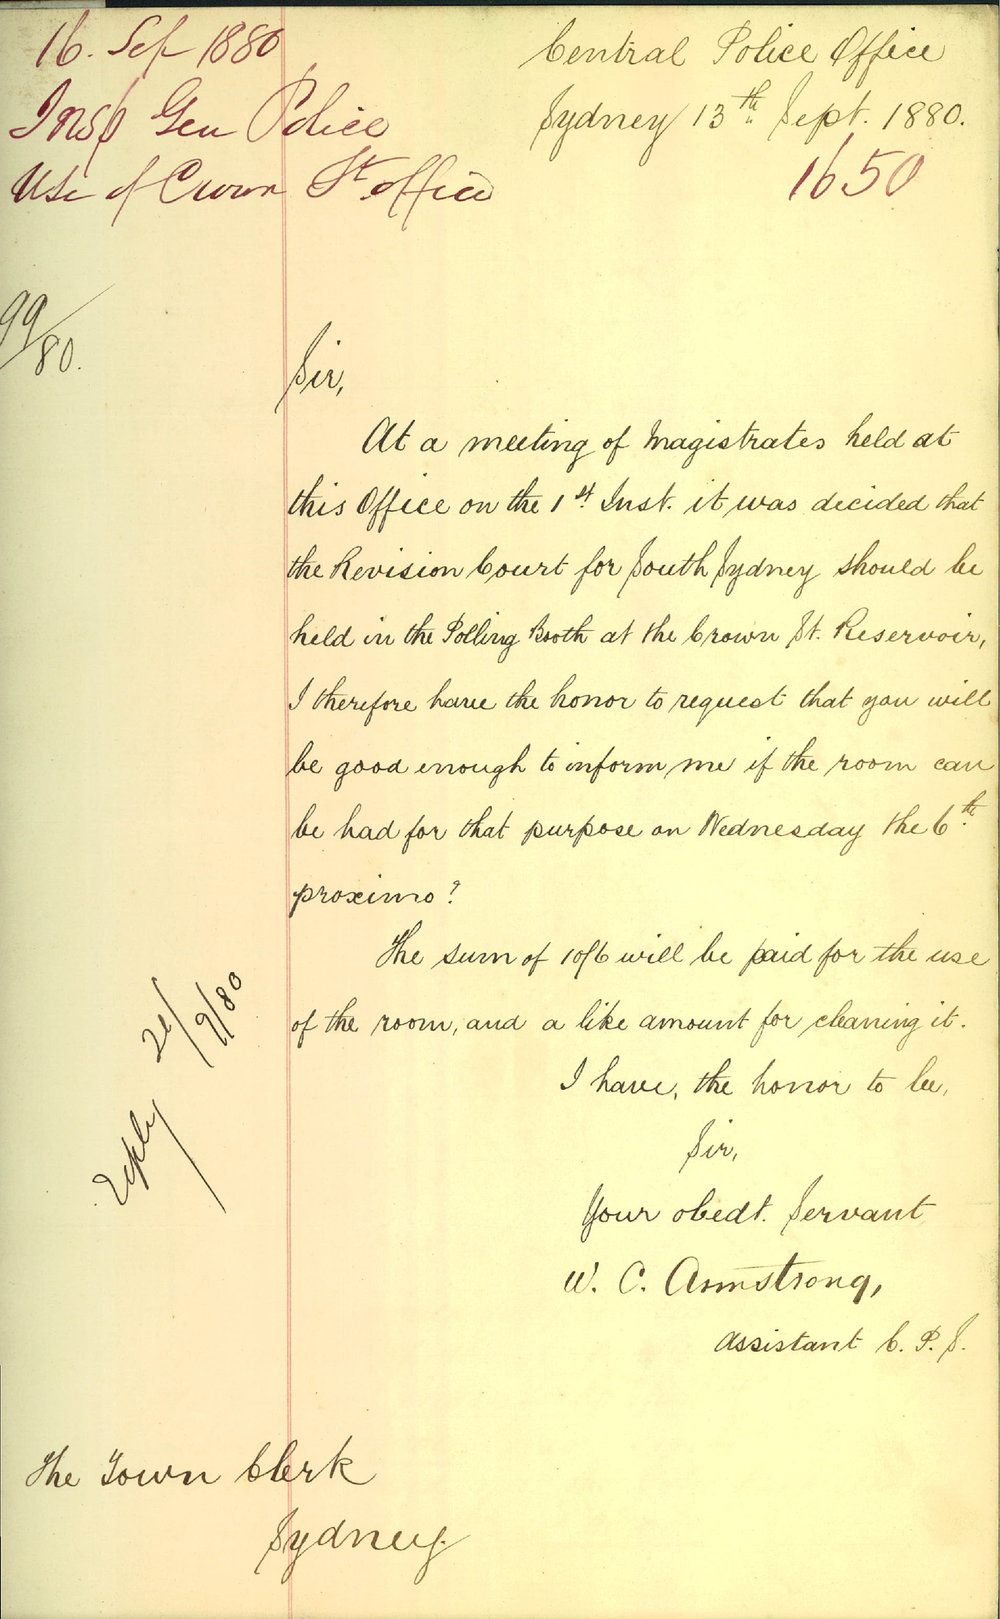 16. Sep 1880
Insp Gen Police
Use of Crown St office
Central Police Office
Sydney 13th Sept. 1880.
1650
99/80.
Sir,
At a meeting of Magistrates held at
this Office on the 1st Inst. it was decided that
the Revision Court for South Sydney should be
held in the Polling Booth at the Crown St. Reservoir,
I therefore have the honor to request that you will
be good enough to inform me if the room can
be had for that purpose on Wednesday the 6th
proximo?
The sum of 10/6 will be paid for the use
of the room, and a like amount for cleaning it.
I have, the honor to be,
Sir,
Your obedt. Servant
W. C. Armstrong,
Assistant C. P. S.
Reply /9/80
The Town Clerk
Sydney.